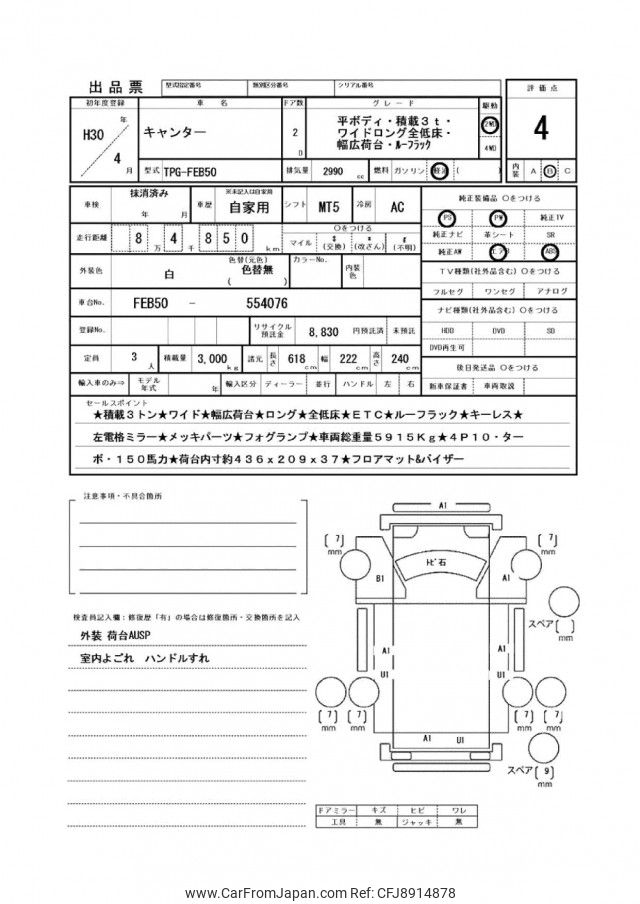 出品票 型式指定番号 類別区分番号 シリアル番号
初年度登録 車 名 ドア数 グ レ ー ド 駆動 評 価 点
H30 年 キャンター 2 D 平ボディ・積載3t・ 2WD 4
ワイドロング全低床・
4 月 幅広荷台・ルーフラック 4WD
型式 TPG-FEB50 排気量 2990 cc 燃料 ガソリン 軽油 ( ) 内装 A B C
車検 抹消済み 年 月 車歴 ※未記入は自家用 自家用 シフト MT5 冷房 AC 純正装備品 ○をつける
PS PW 純正TV
走行距離 8 万 4 千 8 5 0 km ○をつける 純正ナビ 革シート SR
マイル $ (交換) * (改ざん) # (不明) 純正AW エアB ABS
外装色 白 色替(元色) 色替無 ( ) カラーNo. 内装色 TV種類(社外品含む) ○をつける
フルセグ ワンセグ アナログ
車台No. FEB50 - 554076 ナビ種類(社外品含む) ○をつける
登録No. リサイクル預託金 8,830 円預託済 未預託 HDD DVD SD
DVD再生可
定員 3 人 積載量 3,000 kg 諸元 長さ 618 cm 幅 222 cm 高さ 240 cm 後日発送品 ○をつける
輸入車のみ⇒ モデル年式 年 輸入区分 ディーラー 並行 ハンドル 左 右 新車保証書 車両取説
セールスポイント
★積載3トン★ワイド★幅広荷台★ロング★全低床★ETC★ルーフラック★キーレス★
左電格ミラー★メッキパーツ★フォグランプ★車両総重量5915Kg★4P10・ター
ボ・150馬力★荷台内寸約436x209x37★フロアマット&バイザー
注意事項・不具合箇所
A1
( 7 ) mm ( 7 ) mm
ﾄﾋﾞ石
B1 A1
検査員記入欄：修復歴「有」の場合は修復箇所・交換箇所を記入
スペア ( ) mm
外装 荷台AUSP
室内よごれ ハンドルすれ
A1 A1
U1 U1
( 7 ) mm ( 7 ) mm ( 7 ) mm ( 7 ) mm
A1 U1
スペア ( 9 ) mm
ドアミラー キズ ヒビ ワレ
工具 無 ジャッキ 無
www.CarFromJapan.com Ref: CFJ8914878